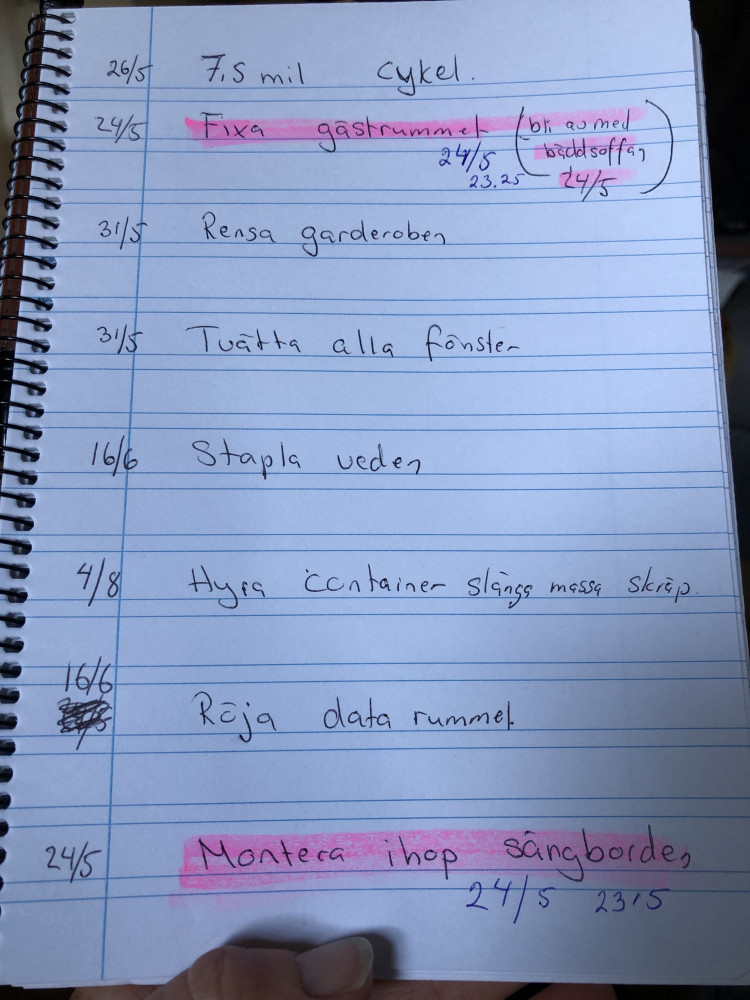 26/5 7,5 mil cykel.
24/5 Fixa gästrummet (bli av med
bäddsoffan
24/5)
24/5
23.25
31/5 Rensa garderoben
31/5 Tvätta alla fönster
16/6 Stapla veden
4/8 Hyra container slänga massa skräp.
16/6
Röja data rummet
24/5 Montera ihop sängborden
24/5 2315